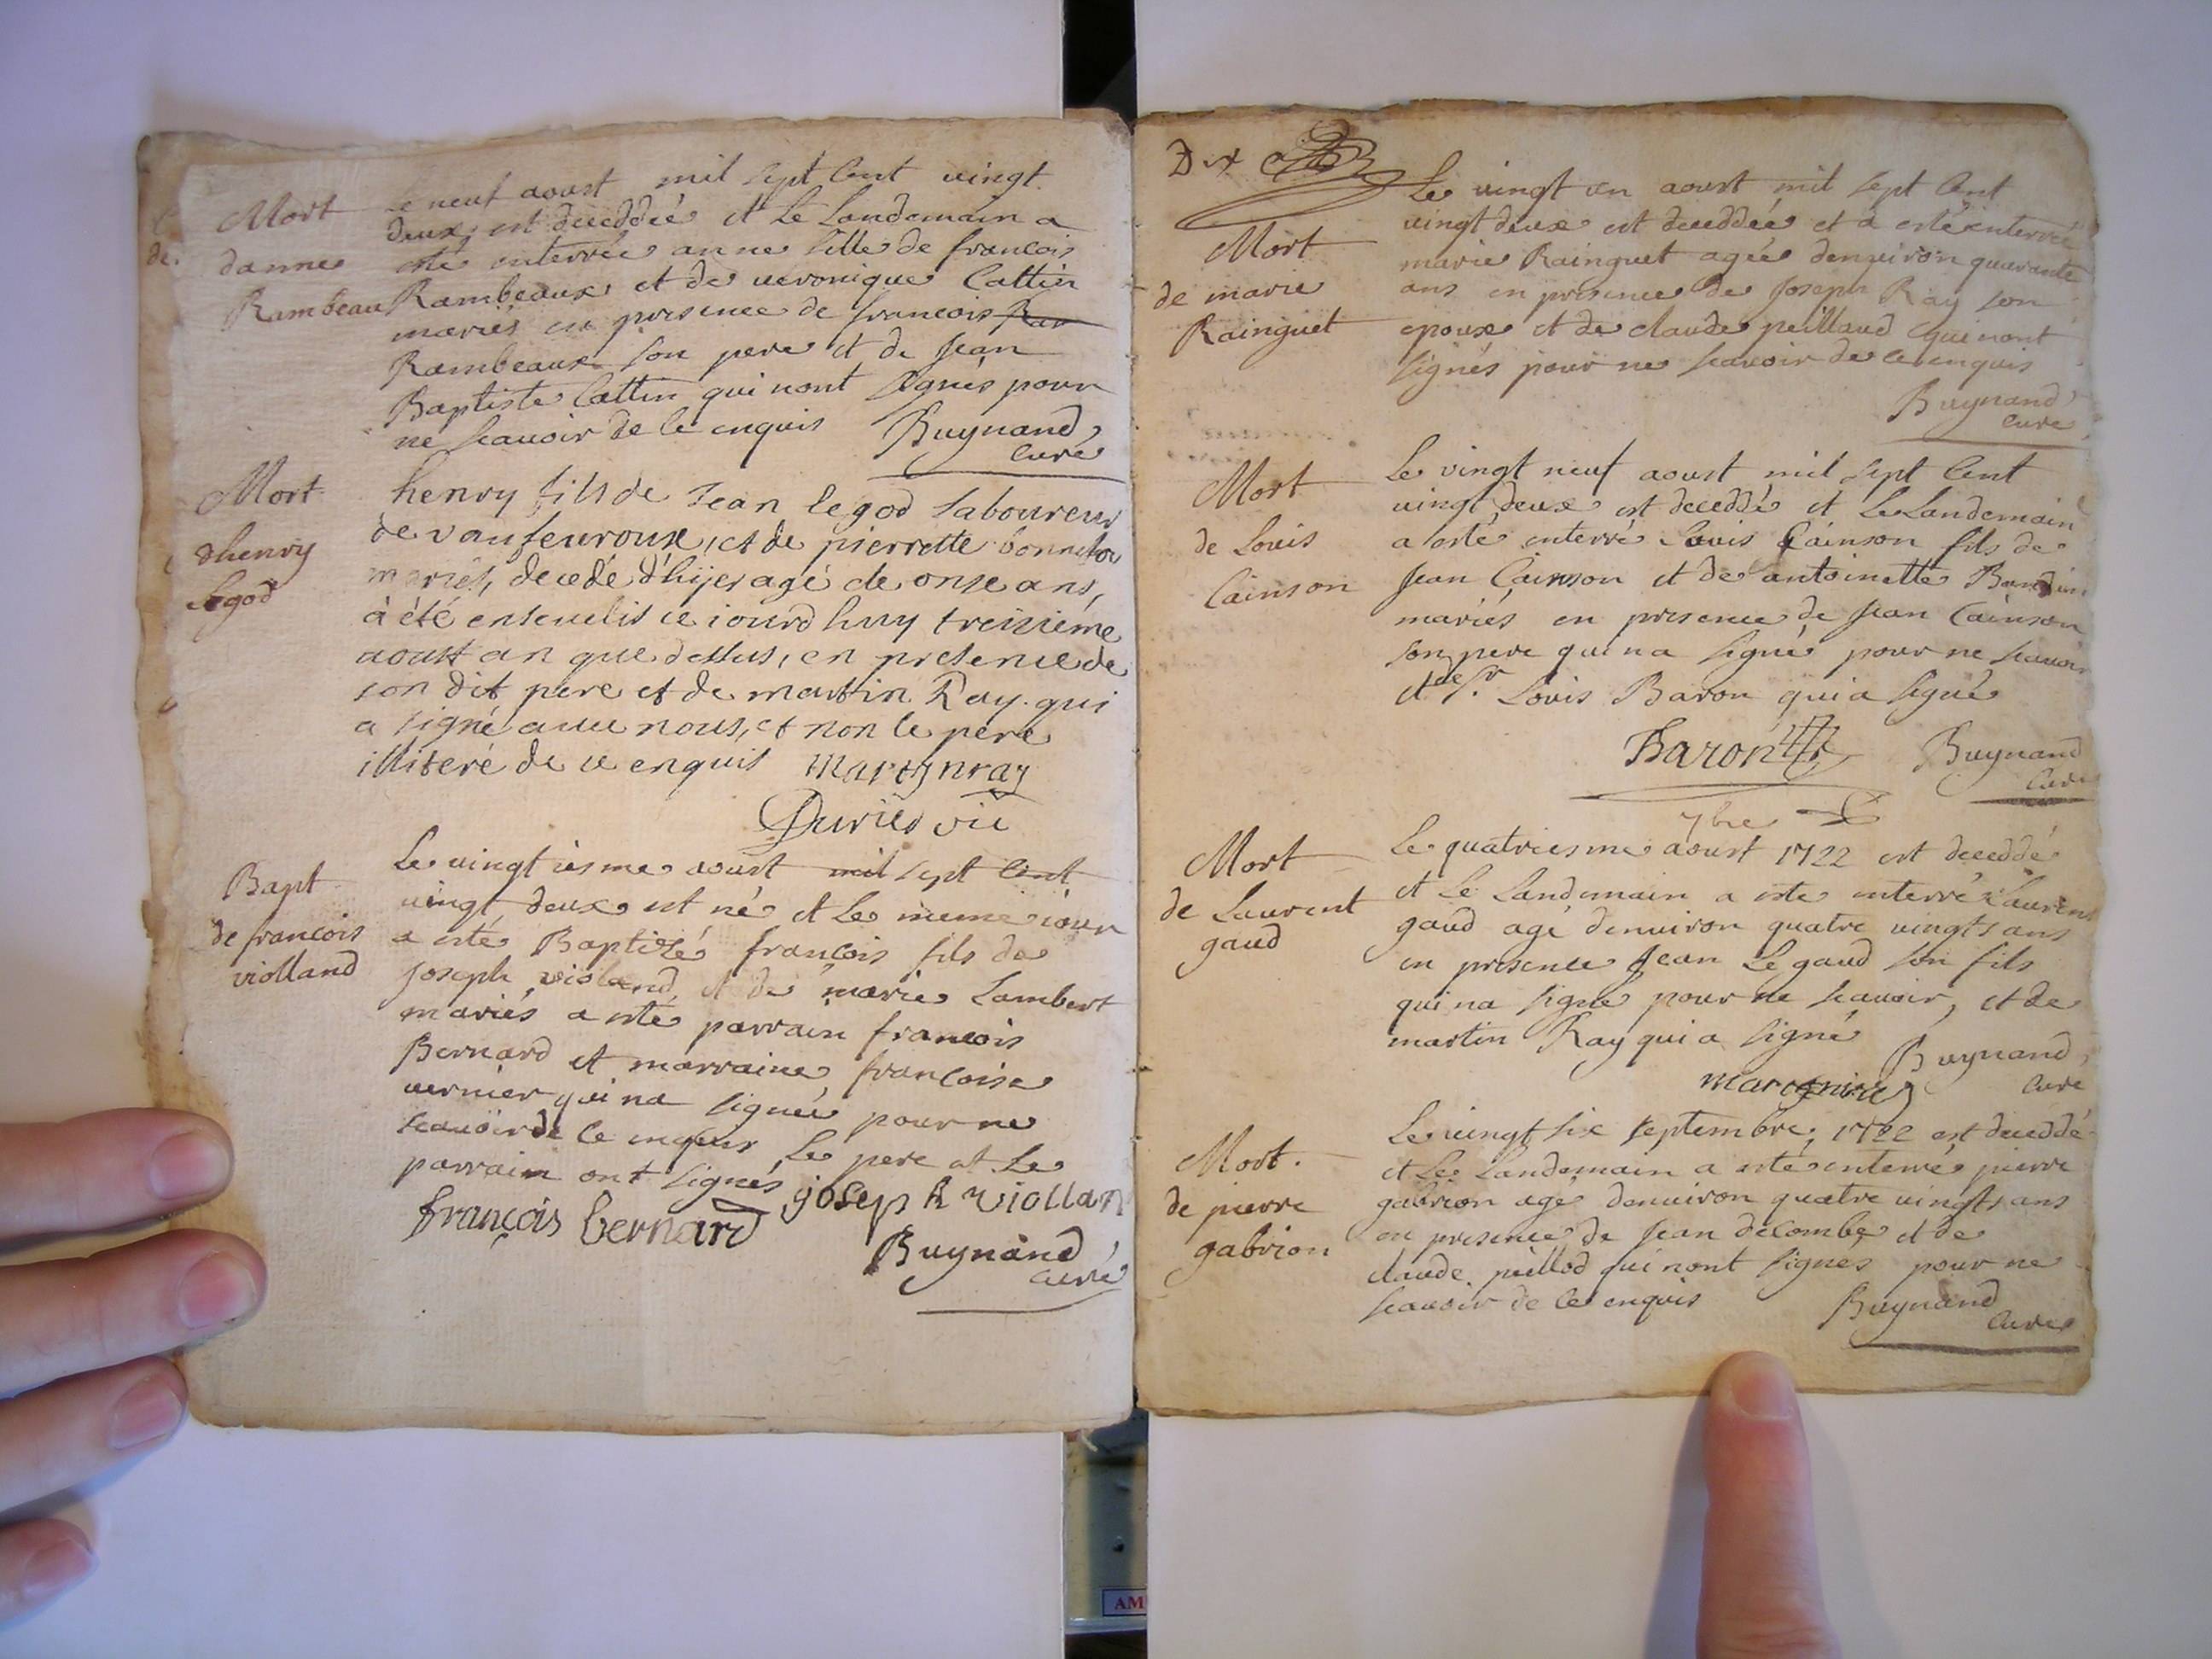 Mort
danne
Rambeau
Le neuf aoust mil sept Cent vingt
deux est deceddée et Le Landemain a
esté enterrée anne fille de francois
Rambeaux et de veronique Cattin
mariés en presence de francois Ram
Rambeaux son pere et de Jean
Baptiste Cattin qui nont signés pour
ne scauoir de ce enquis Buynand
Curé
Mort
dhenry
legod
henry fils de Jean legod laboureur
de vaufeuroux, et de pierrette
mariés, decedé d'hijer agé de onse ans,
à été enseuelis ce iourd huy treisiéme
aoust an que dessus, en presence de
son dit pere et de martin Ray qui
a signé auec nous, et non le pere
illiteré de ce enquis martynray
vic
Bapt
de francois
violland
Le vingtiesme aoust mil sept Cent
vingt deux est né et Le meme iour
a esté Baptizé françois fils de
Joseph violand et de marie Lambert
mariés a esté parrain francois
Bernard et marraine françoise
vernier qui na signée pour ne
scauoir de ce enquis Le pere et Le
parrain ont signés joseph viollan
françois bernard
Buynand
curé
Dix
Mort
de marie
Rainguet
Le vingt un aoust mil sept Cent
vingt deux est deceddée et a esté enterrée
marie Rainguet agée denuiron quarante
ans en presence de Joseph Ray son
epoux et de claude peilland qui nont
signés pour ne scauoir de ce enquis
Buynand
Curé
Mort
de Louis
Cainson
Le vingt neuf aoust mil sept Cent
vingt deux est deceddé et Le Landemain
a esté enterré Louis Cainson fils de
Jean Cainson et de antoinette
mariés en presence de Jean Cainson
son pere qui na signé pour ne scauoir
et de Sr. Louis Baron qui a signé
Baron Buynand
Curé
7bre
Mort
de Laurent
gaud
Le quatriesme aoust 1722 est deceddé
et Le Landemain a esté enterré Laurent
gaud agé denuiron quatre vingts ans
en presence Jean Le gaud son fils
qui na signé pour ne scauoir, et de
martin Ray qui a signé
Buynand
Curé
Mort.
de pierre
gabrion
Le vingt six septembre 1722 est deceddé
et Le Landemain a esté enterré pierre
gabrion agé denuiron quatre vingts ans
en presence de Jean decombe et de
claude peillod qui nont signés pour ne
scauoir de ce enquis Buynand
Curé
AM